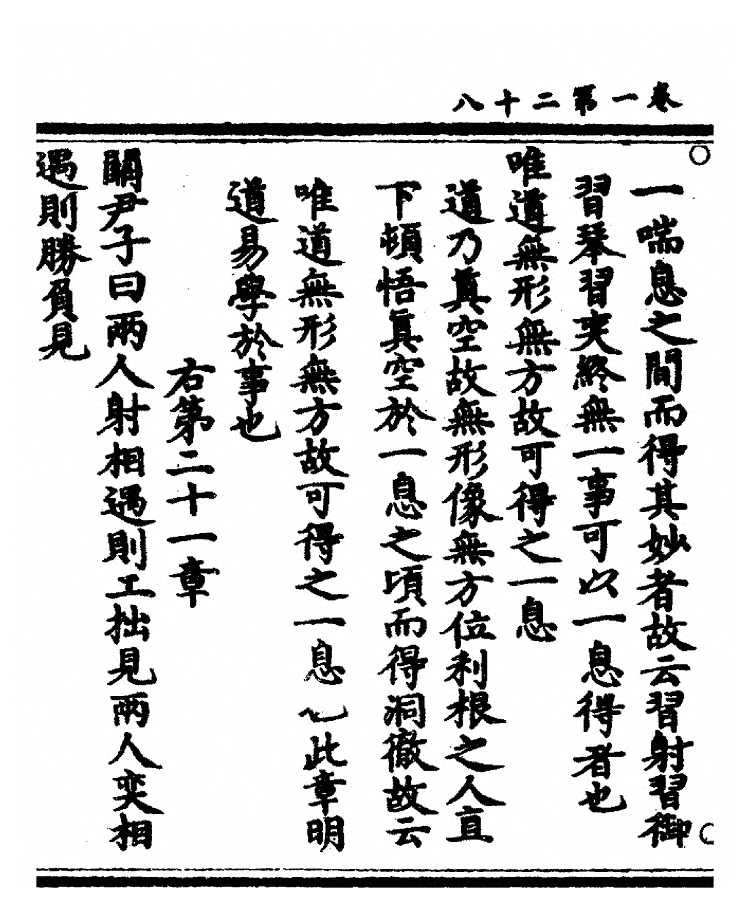 卷一第二十八
一喘息之間而得其妙者故云習射習御
習琴習奕終無一事可以一息得者也
唯道無形無方故可得之一息
道乃眞空故無形像無方位利根之人直
下頓悟眞空於一息之頃而得洞徹故云
唯道無形無方故可得之一息也此章明
道易學於事也
右第二十一章
關尹子曰兩人射相遇則工拙見兩人奕相
遇則勝負見